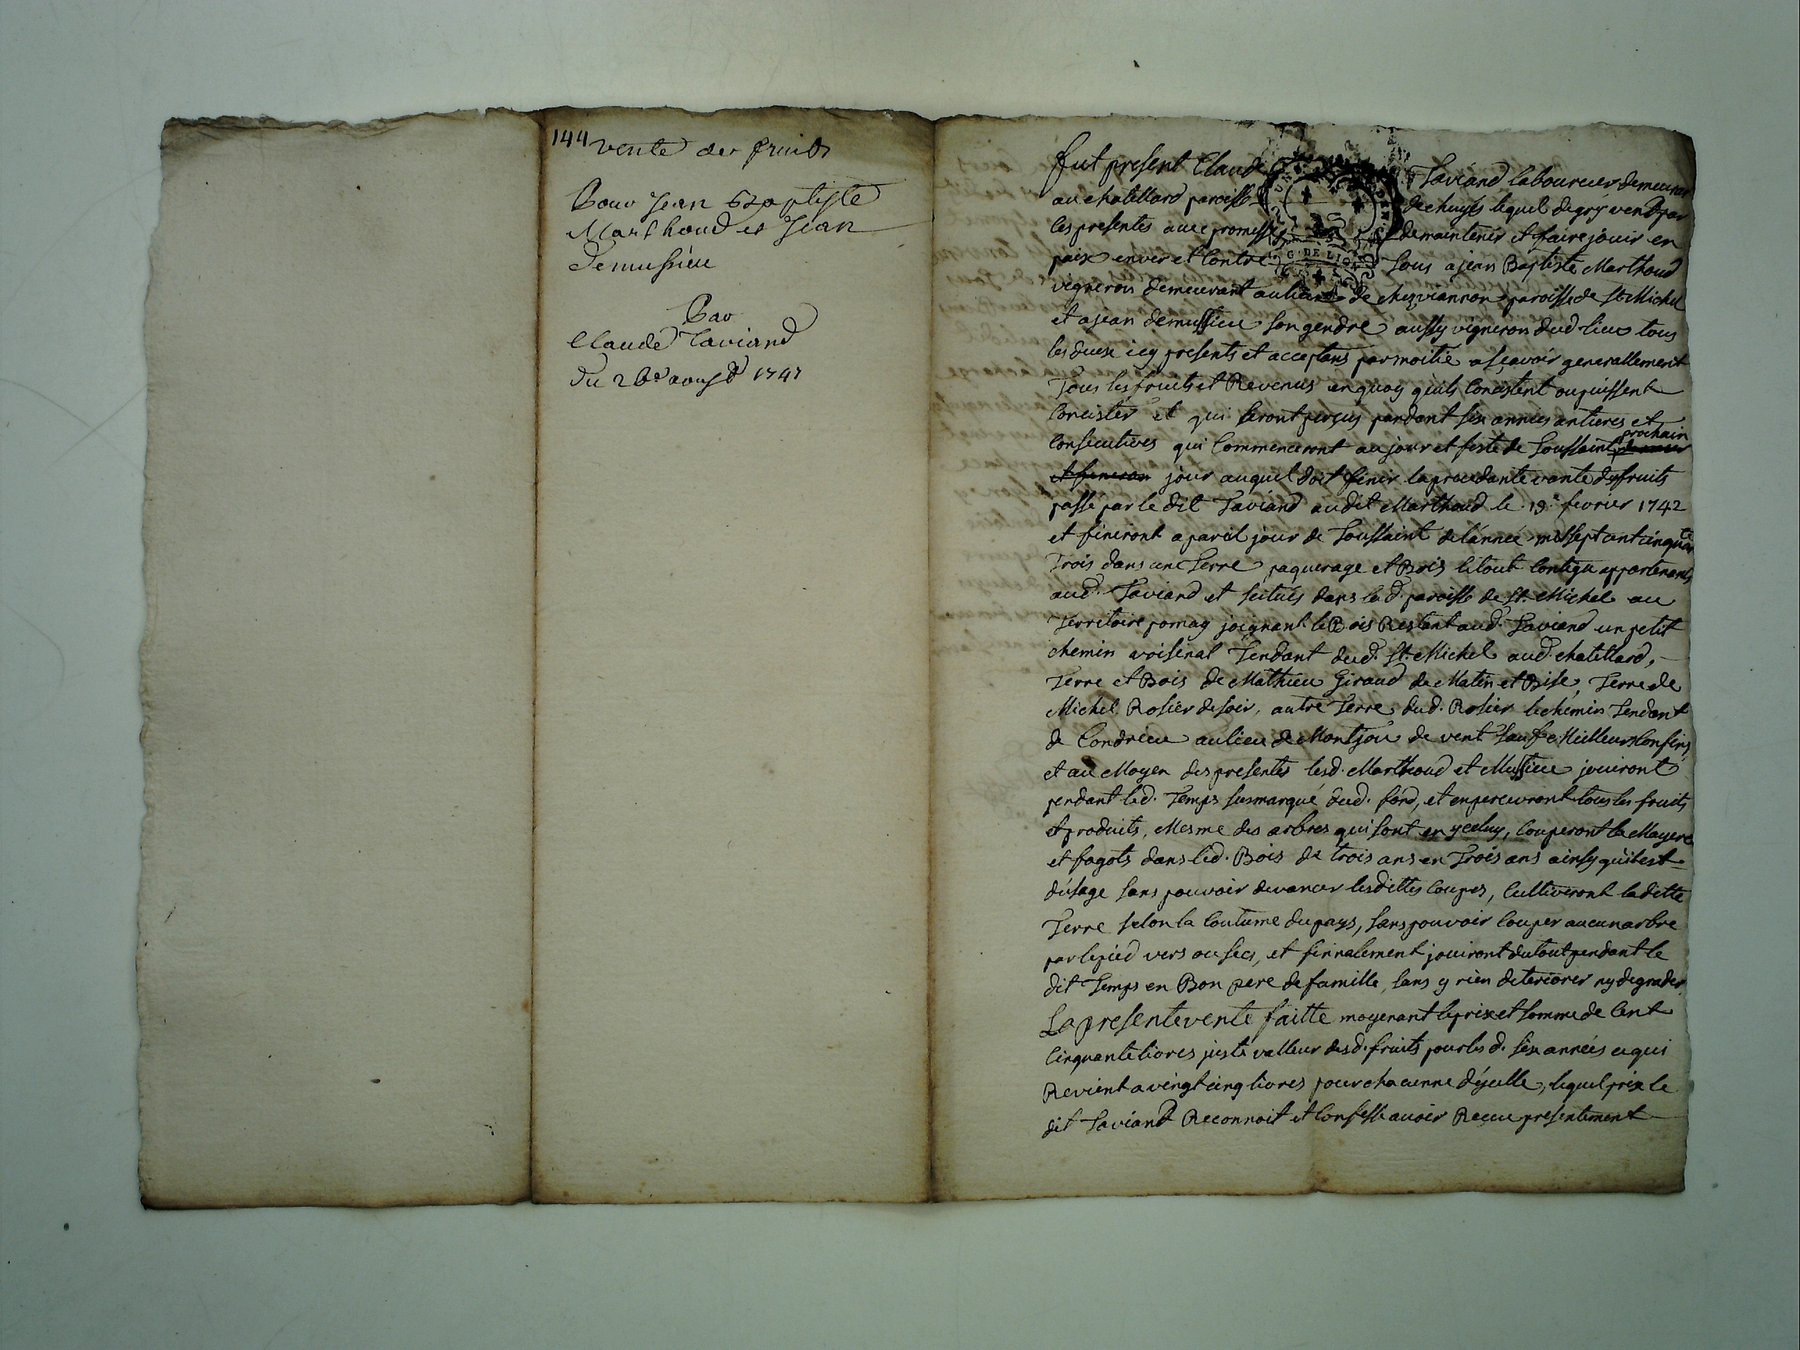 144 vente des fruits
Pour Jean Baptiste
Marthoud et Jean
Demussieu
Par
Claude Taviand
Du 26e aoust 1747
fut present Claude Taviand laboureur demeurant
au chatellard paroisse de chuyes lequel de gré vend par
les presentes avec promesse de maintenir et faire jouir en
paix enver et contre tous a jean Baptiste Marthoud
vigneron demeurant au lieu de chezviannon paroisse de St Michel
et a jean demussieu son gendre aussy vigneron dud. lieu tous
les deux icy presents et acceptans par moitié a sçavoir generallement
Tous les fruits et Revenus en quoy quils Concistent ou puissent
Concister et qui seront perçus pendant six années antieres et
Consecutives qui Commenceront au jour et feste de Toussaint prochain
et finiron jour auquel doit finir la precedante vante des fruits
passé par le dit Taviand audit Marthoud le 19e fevrier 1742
et finiront a pareil jour de Toussaint de l'année mil sept cent cinquante
Trois dans une Terre paquerage et Bois le tout contigu appartenants
aud. Taviand et scitués dans lad. paroisse de St Michel au
Territoire pomay joignant le Bois Restant aud. Taviand un petit
chemin voisinal Tendant dud. St Michel aud. chatellard,
Terre et Bois de Mathieu Giraud de Matin et Bise, Terre de
Michel Rosier de soir, autre Terre dud. Rosier le chemin Tendant
de Condrieu au lieu de Montjou de vent sauf Meilleurs Confins
et au Moyen des presentes lesd. Marthoud et Mussieu jouiront
pendant led. Temps susmarqué dud. fond, et en percevront tous les fruits
et produits, Mesme des arbres qui sont en yceluy, Couperont la Mayere
et fagots dans led. Bois de trois ans en Trois ans ainsy quil est
d'usage sans pouvoir devancer lesdittes Coupes, Cultiveront laditte
Terre selon la Coutume du pays, sans pouvoir Couper aucun arbre
par le pied vers ou secs, et finnalement jouiront du tout pendant le
dit Temps en Bon pere de famille, sans y rien deteriorer ny degrader.
La presente vente faitte moyenant le prix et somme de Cent
Cinquante livres juste valleur desd. fruits pour lesd. six années ce qui
Revient a vingt cinq livres pour chacunne d'ycelle, lequel prix le
dit Taviand Reconnoit et Confesse avoir Receu presentement
G. DE LION